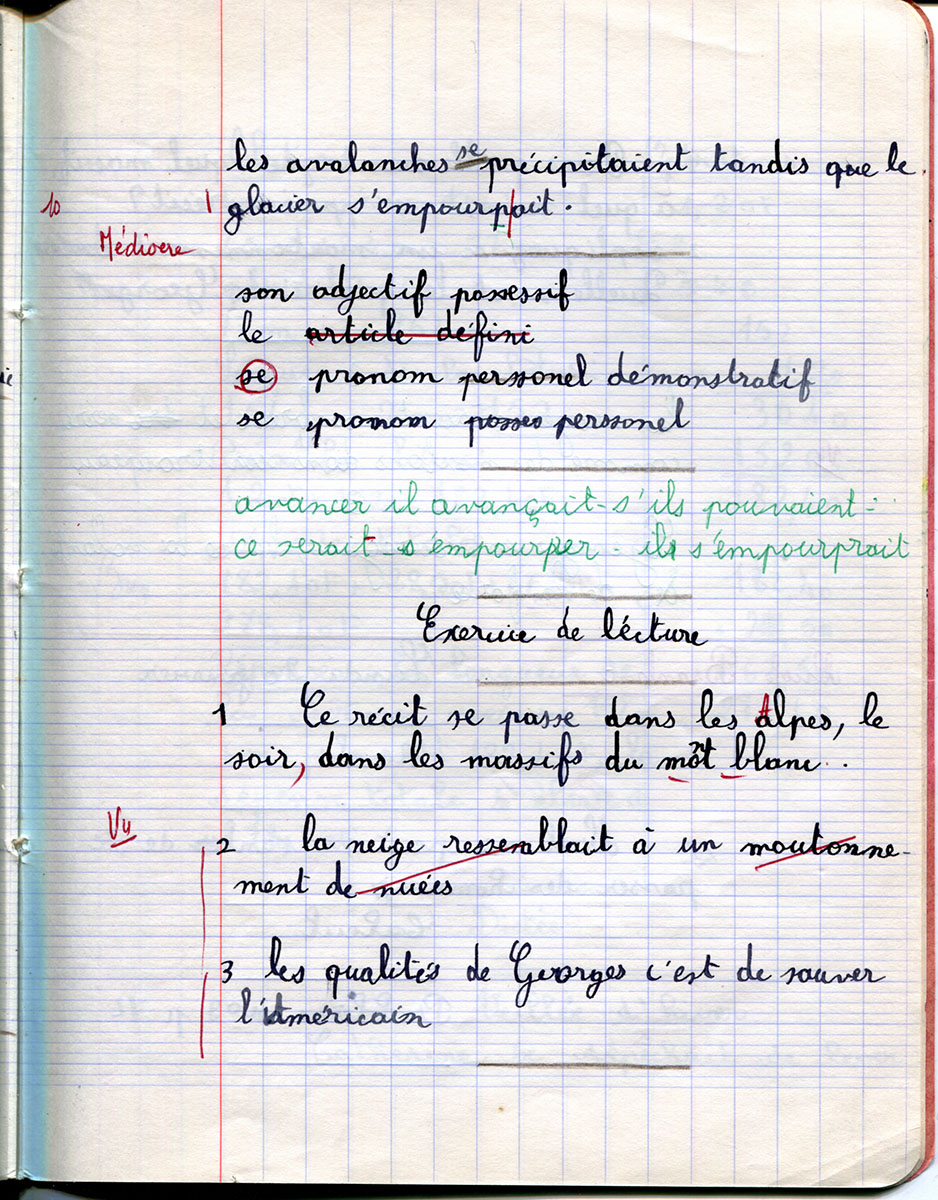 les avalanches se précipitaient tandis que le
10 1 glacier s'empourpait.
Médiocre
son adjectif possessif
le article défini
se pronom personel démonstratif
se pronom posses personel
avancer il avançait - s'ils pouvaient -
ce serait - s'empourper - ils s'empourprait
Exercice de lécture
1 Ce récit se passe dans les Alpes, le
soir, dans les massifs du mont blanc.
Vu
2 la neige ressemblait à un moutonne-
ment de nuées
3 les qualités de Georges c'est de sauver
l'Américain